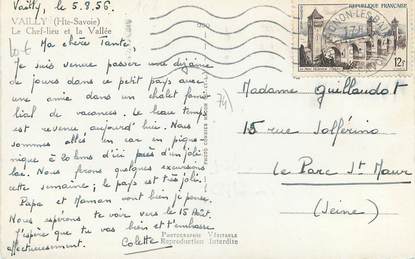 Vailly, le 5.8.56.
VAILLY (Hte-Savoie)
Le Chef-lieu et la Vallée
Ma chère tante,
Je suis venue passer une dizaine
de jours dans ce petit pays avec
une amie dans un chalet fami
lial de vacances. Le beau temps
est revenu aujourd'hui. Nous
sommes allés en car en pique
nique à 20 kms d'ici près d'un joli
lac. Nous ferons quelques excursions
cette semaine; le pays est très joli.
Papa et Maman vont bien je pense.
Nous espérons te voir vers le 15 Août.
J'espère que tu vas bien et t'embrasse
affectueusement.
Colette
PHOTOGRAPHIE VÉRITABLE
Reproduction Interdite
74
THONON-LES-BAINS
RÉPUBLIQUE FRANÇAISE
12F
Madame Guillaudot
15 rue Solférino
Le Parc St Maur
(Seine)